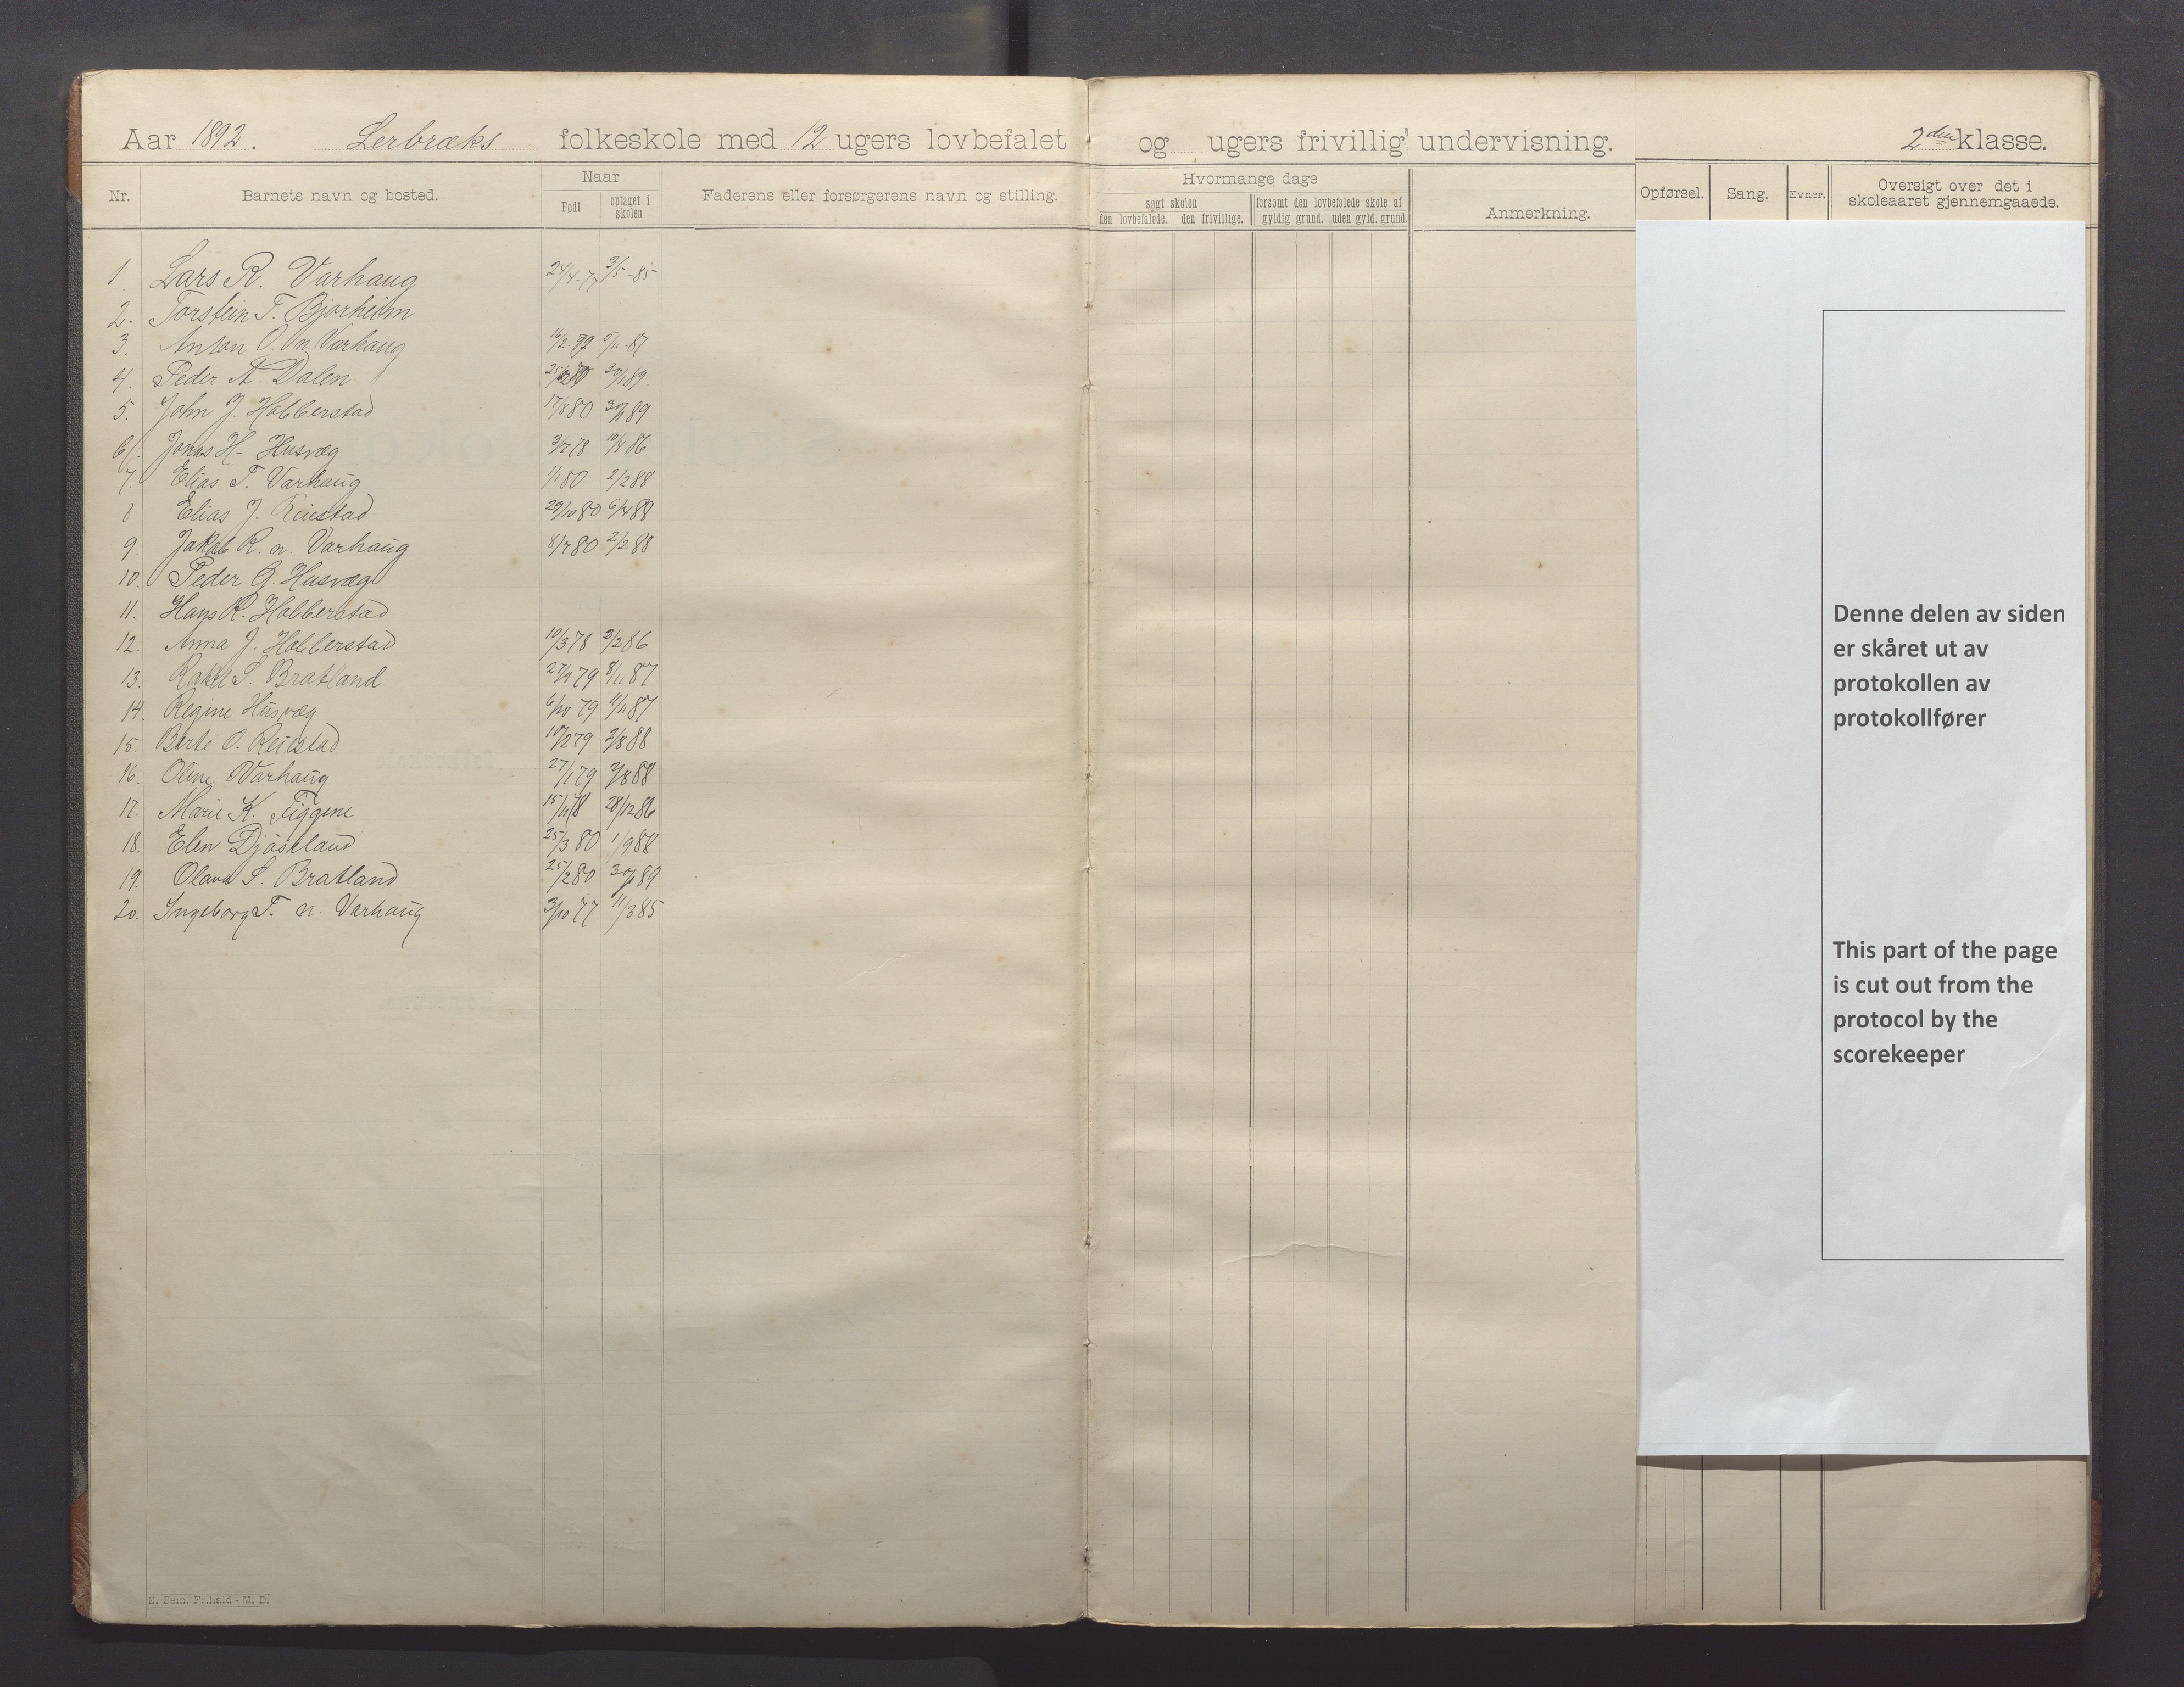 Aar 1892. Lerbræks folkeskole med 12 ugers lovbefalet og ugers frivillig undervisning. 2den klasse.
Nr. Barnets navn og bosted. Naar Født optaget i skolen Faderens eller forsørgerens navn og stilling. Hvormange dage søgt skolen den lovbefalede. den frivillige. forsømt den lovbefalede skole af gyldig grund. uden gyld. grund. Anmerkning. Opførsel. Sang. Evner. Oversigt over det i skoleaaret gjennemgaaede.
1. Lars R. Varhaug 24/4-77 3/5-85
2. Torstein T. Bjorheim
3. Anton O. n. Varhaug 16/2-79 5/11-87
4. Peder A. Dalen 30/1 89.
5. John J. Habberstad 17/8 80 30/1 89
6. Jonas H. Husvæg 3/7 78 10/4 86
7 Elias T. Varhaug 1/1 80 2/2 88
8 Elias J. Reiestad 29/10 80 6/4 88
9. Jakob R. n. Varhaug 8/7 80 2/2 88
10. Peder G. Husvæg
11. Hans R. Habberstad
12. Anna J. Habberstad 10/3 78 3/2 86
13. Rakel S. Bratland 27/7 79 8/11 87
14. Regine Husvæg 6/10 79 11/11 87
15. Berte O. Reiestad 10/2 79 2/8 88
16. Oline Varhaug 27/1 79 2/8 88
17. Marie K. Tiggene 15/11 78 28/12 86
18. Elen Djøseland 25/3 80 1/9 88
19. Olava S. Bratland 25/2 80 30/1 89
20. Ingeborg T. n. Varhaug 3/10 77 11/3 85
Denne delen av siden
er skåret ut av
protokollen av
protokollfører
This part of the page
is cut out from the
protocol by the
scorekeeper
E. Sem. Fr.hald - M. D.